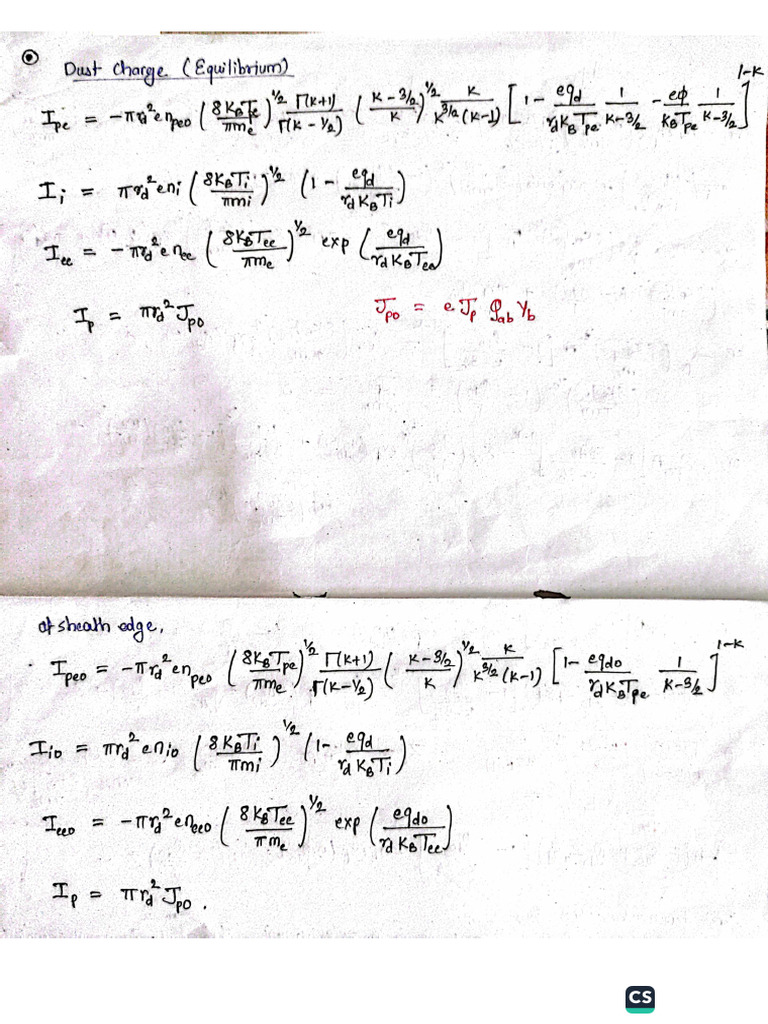 Dust Charge (Equilibrium)
I_pe = -πr_d² e n_peo (8K_BT_pe/πm_e)^1/2 Γ(κ+1)/Γ(κ-1/2) (κ-3/2/κ)^1/2 κ/κ^3/2(κ-1) [1 - eq_d/r_dK_BT_pe 1/κ-3/2 - eφ/K_BT_pe 1/κ-3/2]^1-κ
I_i = πr_d² e n_i (8K_BT_i/πm_i)^1/2 (1 - eq_d/r_dK_BT_i)
I_ee = -πr_d² e n_ee (8K_BT_ee/πm_e)^1/2 exp (eq_d/r_dK_BT_ee)
I_p = πr_d² J_po J_po = e J_p Q_ab Y_b
at sheath edge,
I_peo = -πr_d² e n_peo (8K_BT_pe/πm_e)^1/2 Γ(κ+1)/Γ(κ-1/2) (κ-3/2/κ)^1/2 κ/κ^3/2(κ-1) [1 - eq_do/r_dK_BT_pe 1/κ-3/2]^1-κ
I_io = πr_d² e n_io (8K_BT_i/πm_i)^1/2 (1 - eq_d/r_dK_BT_i)
I_eeo = -πr_d² e n_eeo (8K_BT_ee/πm_e)^1/2 exp (eq_do/r_dK_BT_ee)
I_p = πr_d² J_po .
CS